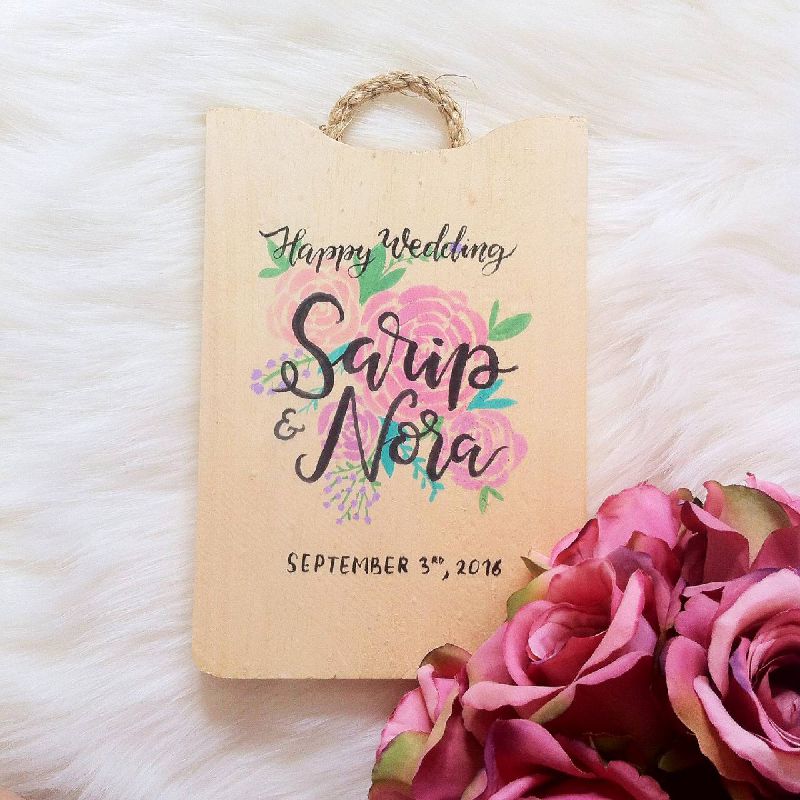 Happy Wedding
Sarip
& Nora
SEPTEMBER 3RD, 2016